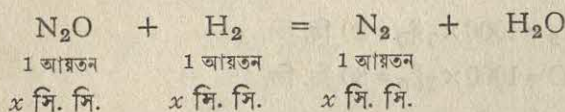 N₂O + H₂ = N₂ + H₂O
1 আয়তন 1 আয়তন 1 আয়তন
x মি. মি. x মি. মি. x মি. মি.